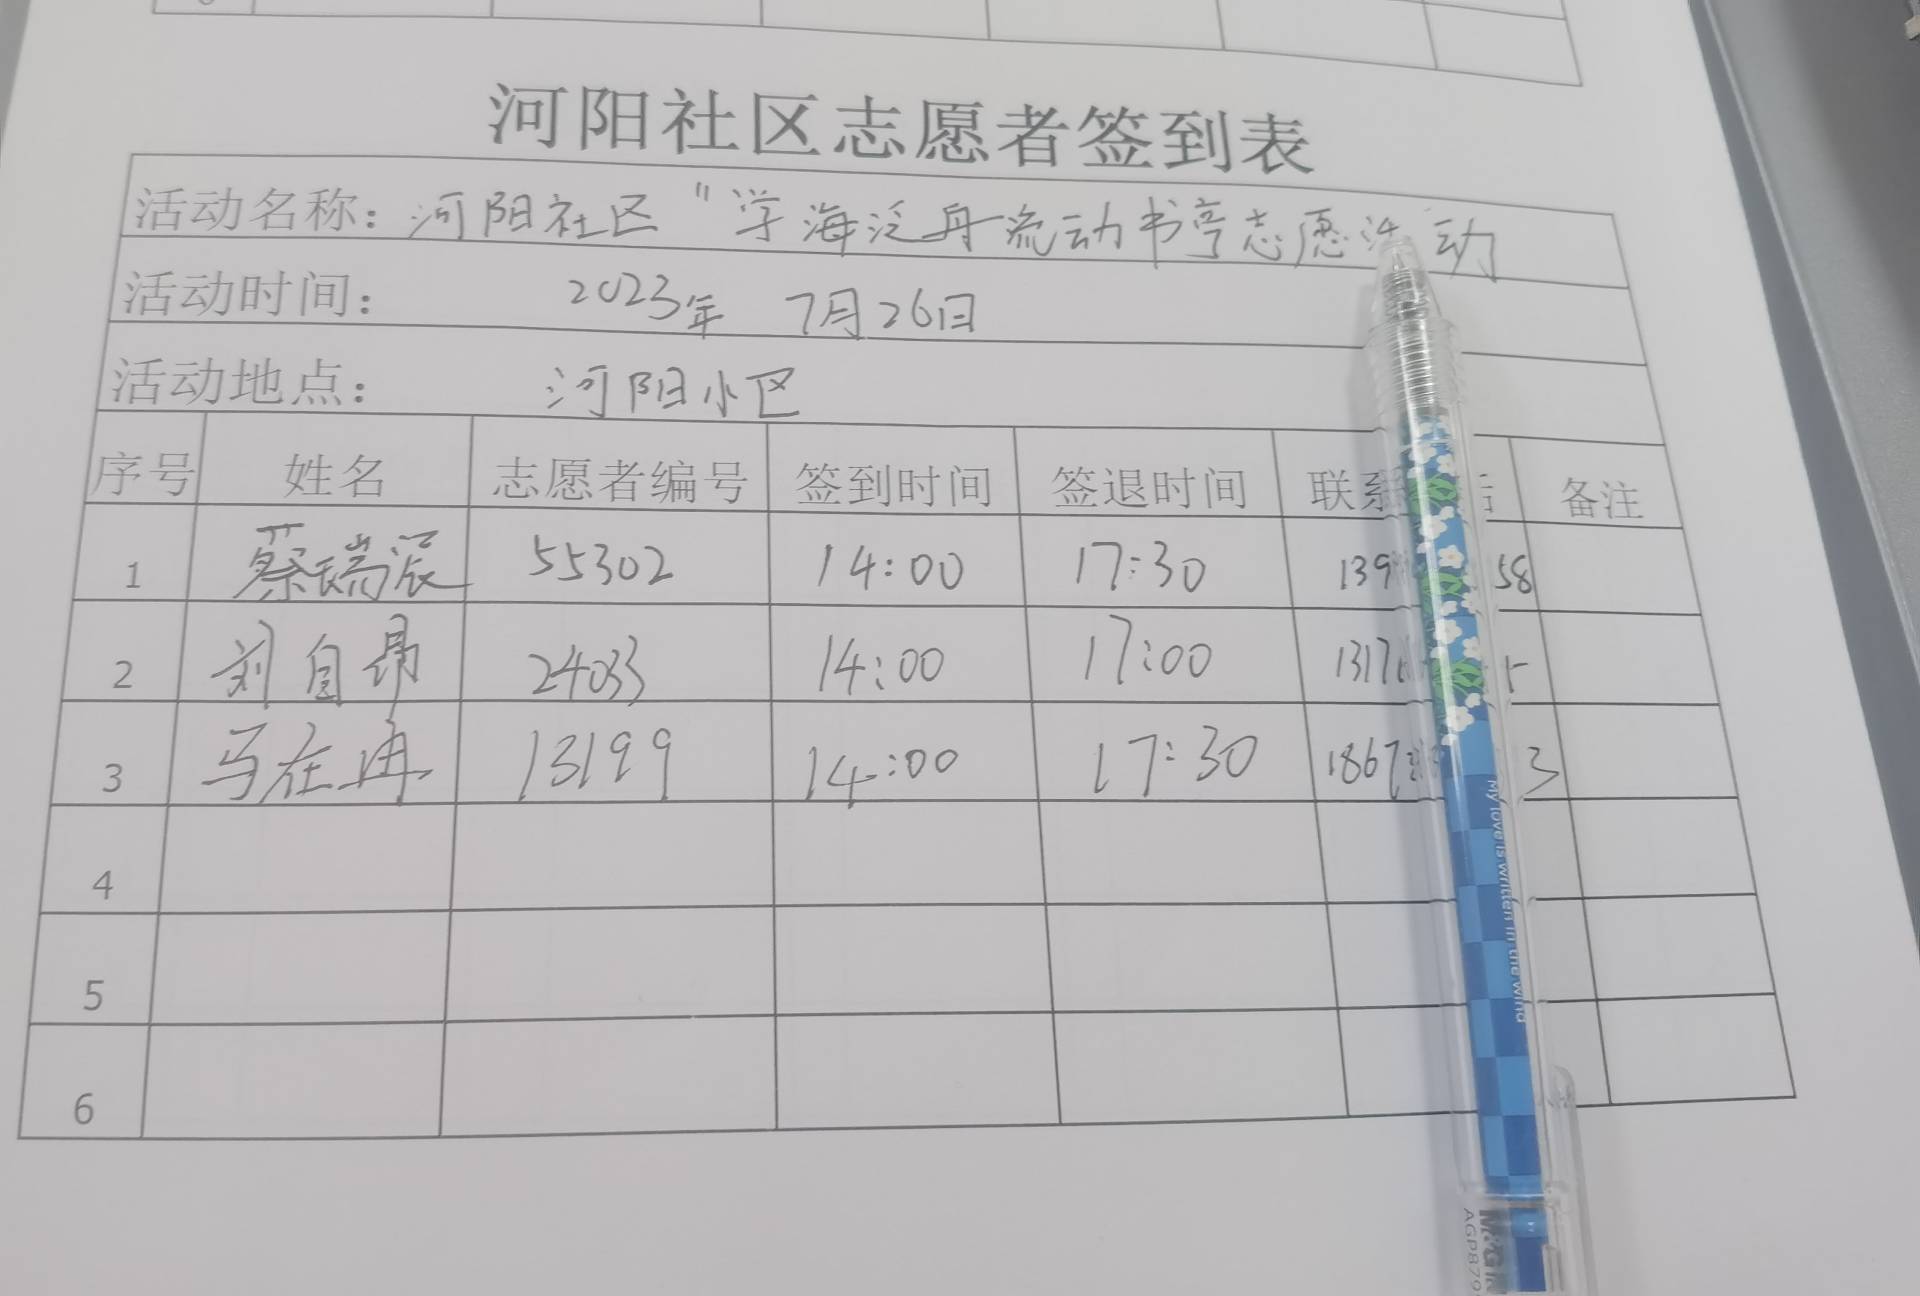 河阳社区志愿者签到表
活动名称：河阳社区"学海泛舟流动书亭志愿活动
活动时间： 2023年 7月26日
活动地点： 河阳小区
序号 姓名 志愿者编号 签到时间 签退时间 联系 备注
1 蔡瑞宸 55302 14:00 17:30 139 58
2 刘自昂 24033 14:00 17:00 1317
3 马在冉 13199 14:00 17:30 1867 3
4
5
6
My love is written in the wind
M&G
AGP879